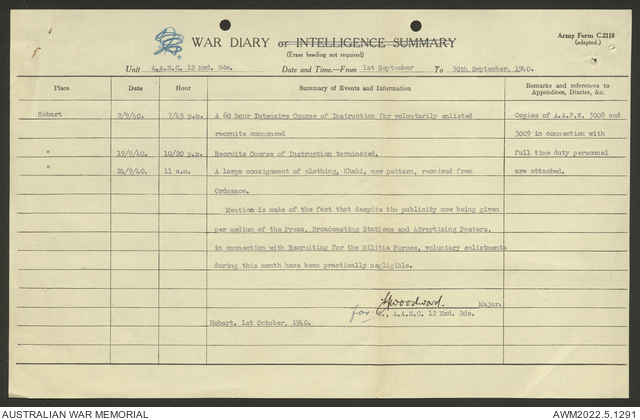 WAR DIARY or INTELLIGENCE SUMMARY
(Erase heading not required)
Army Form C.2118
(adapted.)
Unit A.A.S.C. 12 Mxd. Bde. Date and Time.—From 1st September To 30th September, 1940.
Place Date Hour Summary of Events and Information Remarks and references to
Appendices, Diaries, &c.
Hobart 2/9/40. 7/45 p.m. A 60 hour Intensive Course of Instruction for voluntarily enlisted Copies of A.A.F.W. 3008 and
recruits commenced 3009 in connection with
" 19/9/40. 10/20 p.m. Recruits Course of Instruction terminated. full time duty personnel
" 24/9/40. 11 a.m. A large consignment of clothing, Khaki, new pattern, received from are attached.
Ordnance.
Mention is made of the fact that despite the publicity now being given
per medium of the Press, Broadcasting Stations and Advertising Posters,
in connection with Recruiting for the Militia Forces, voluntary enlistments
during this month have been practically negligible.
Woodward. Major.
for C., A.A.S.C. 12 Mxd. Bde.
Hobart. 1st October, 1940.
AUSTRALIAN WAR MEMORIAL AWM2022.5.1291